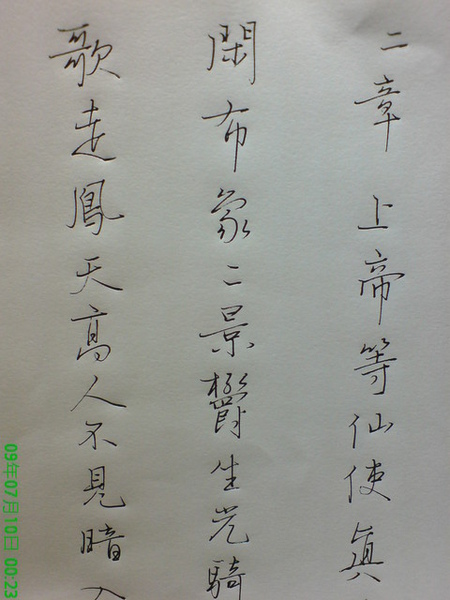 二章 上帝等仙使眞
閑布象二景鬱生光騎
歌走鳳天高人不見暗入
09年07月10日 00:23